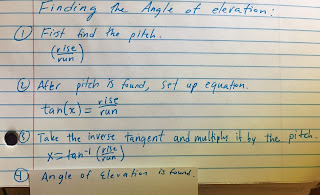 Finding the Angle of elevation:
① Fist find the pitch.
(rise/run)
② After pitch is found, set up equation.
tan(x) = rise/run
③ Take the inverse tangent and multiply it by the pitch.
x = tan⁻¹ (rise/run)
④ Angle of Elevation is found.